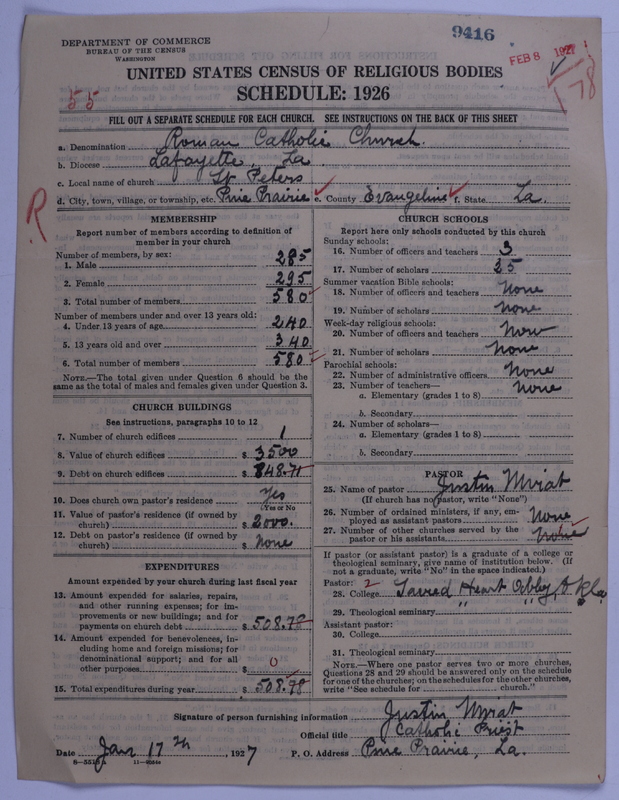 DEPARTMENT OF COMMERCE
BUREAU OF THE CENSUS
WASHINGTON
9416
FEB 8 1927
178
55
UNITED STATES CENSUS OF RELIGIOUS BODIES
SCHEDULE: 1926
FILL OUT A SEPARATE SCHEDULE FOR EACH CHURCH. SEE INSTRUCTIONS ON THE BACK OF THIS SHEET
a. Denomination Roman Catholic Church.
b. Diocese Lafayette, La
c. Local name of church St Peters
d. City, town, village, or township, etc. Pine Prairie e. County Evangeline f. State La.
R
MEMBERSHIP
Report number of members according to definition of
member in your church
Number of members, by sex:
1. Male 285
2. Female 295
3. Total number of members 580
Number of members under and over 13 years old:
4. Under 13 years of age 240
5. 13 years old and over 340
6. Total number of members 580
NOTE.—The total given under Question 6 should be
same as the total of males and females given under Question 3.
CHURCH BUILDINGS
See instructions, paragraphs 10 to 12
7. Number of church edifices 1
8. Value of church edifices $ 3500
9. Debt on church edifices $ 848.71
10. Does church own pastor's residence Yes
(Yes or No)
11. Value of pastor's residence (if owned by
church) $ 2000.
12. Debt on pastor's residence (if owned by
church) $ None
EXPENDITURES
Amount expended by your church during last fiscal year
13. Amount expended for salaries, repairs,
and other running expenses; for im-
provements or new buildings; and for
payments on church debt $ 508.78
14. Amount expended for benevolences, in-
cluding home and foreign missions; for
denominational support; and for all
other purposes $ 0
15. Total expenditures during year $ 508.78
CHURCH SCHOOLS
Report here only schools conducted by this church
Sunday schools:
16. Number of officers and teachers 3
17. Number of scholars 25
Summer vacation Bible schools:
18. Number of officers and teachers None
19. Number of scholars None
Week-day religious schools:
20. Number of officers and teachers None
21. Number of scholars None
Parochial schools:
22. Number of administrative officers None
23. Number of teachers— None
a. Elementary (grades 1 to 8)
b. Secondary
24. Number of scholars—
a. Elementary (grades 1 to 8)
b. Secondary
PASTOR
25. Name of pastor Justin Mirat
(If church has no pastor, write "None")
26. Number of ordained ministers, if any, em-
ployed as assistant pastors None
27. Number of other churches served by the
pastor or his assistants None
If pastor (or assistant pastor) is a graduate of a college or
theological seminary, give name of institution below. (If
not a graduate, write "No" in the space indicated.)
Pastor: 2
28. College Sacred Heart Abbey, Okla
29. Theological seminary " " "
Assistant pastor:
30. College
31. Theological seminary
NOTE.—Where one pastor serves two or more churches,
Questions 28 and 29 should be answered only on the schedule
for one of the churches; on the schedules for the other churches,
write "See schedule for church."
Signature of person furnishing information Justin Mirat
Official title Catholic Priest
Date Jan 17th, 1927 P. O. Address Pine Prairie, La.